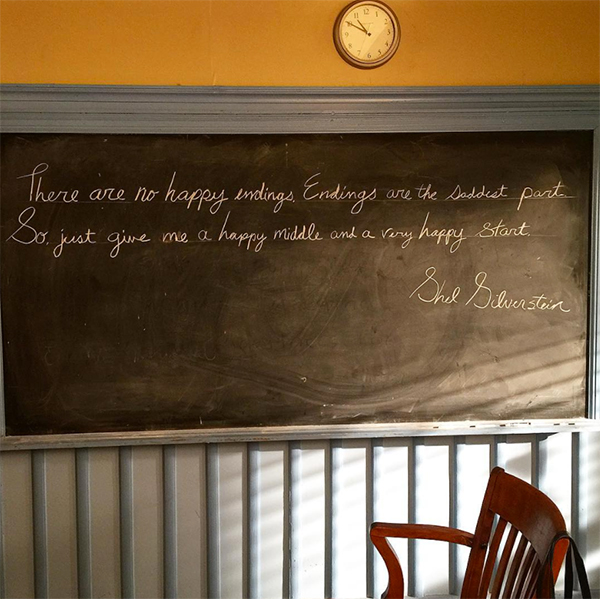 There are no happy endings. Endings are the saddest part.
So, just give me a happy middle and a very happy start.
Shel Silverstein